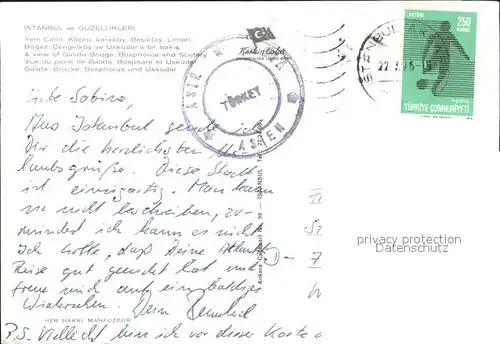 İSTANBUL ve GÜZELLİKLERİ
Yeni Cami, Köprü, karaköy, Beşiktaş, Liman,
Boğaz, Çengelköy ve Üsküdar'a bir bakış
A view of Galata-Bridge, Bosphorus and Scutary
Vue du pont de Galata, Bosphore et Uskudar
Galata-Brücke, Bosphorus und Uskudar
Keskin Color
ASIE
TÜRKEY
ASIEN
İSTANBUL
POSTA
250
KURUŞ
FUTBOL
TÜRKİYE CUMHURİYETİ
Liebe Sabine,
Aus Istanbul sende ich
Dir die herzlichsten Ur-
laubsgrüße. Diese Stadt
ist einzigartig. Man kann
sie nicht beschreiben, zu-
mindest ich kann es nicht
Ich hoffe, daß Deine
Reise gut gewesen hat und
freue mich auf ein baldiges
Wiedersehen. Dein
P.S. Vielleicht bin ich vor dieser Karte
HER HAKKI MAHFUZDUR
Ankara Caddesi No. 98 - İSTANBUL
privacy protection
Datenschutz